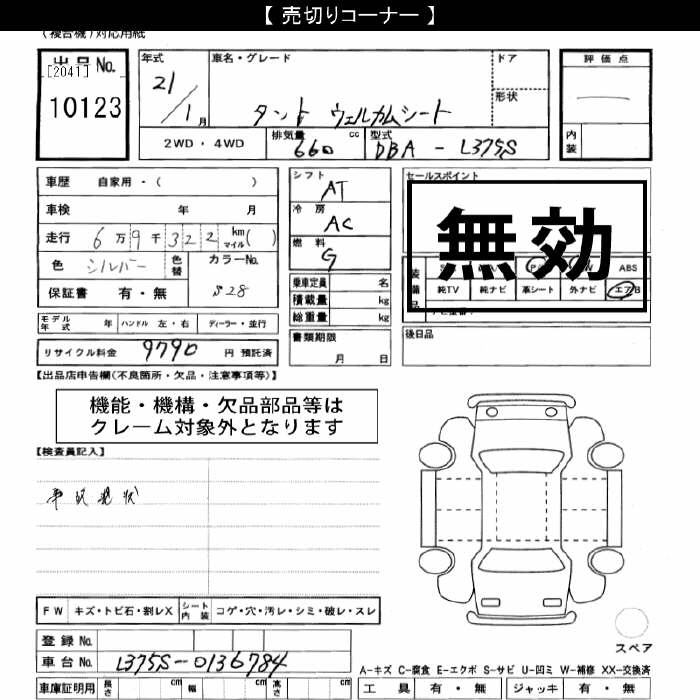 【 売切りコーナー 】
(複合機)対応用紙
出品No.
[2041]
10123
年式
21/1月
車名・グレード
タント ウェルカムシート
ドア
形状
2WD・4WD
排気量 660 cc
型式 DBA - L375S
評価点
内装
車歴 自家用・( )
車検 年 月
走行 6万9千322 km マイル( )
色 シルバー 色替 カラーNo. S28
保証書 有・無
シフト AT
冷房 AC
燃料 G
乗車定員 名
積載量 kg
総重量 kg
書類期限
月 日
セールスポイント
無効
装備品
ABS
純TV 純ナビ 革シート 外ナビ エアB
後日品
モデル年式 年 ハンドル 左・右 ディーラー・並行
リサイクル料金 9790 円 預託済
【出品店申告欄(不良箇所・欠品・注意事項等)】
機能・機構・欠品部品等は
クレーム対象外となります
【検査員記入】
現状
FW キズ・トビ石・割レX シート内装 コゲ・穴・汚レ・シミ・破レ・スレ
登録 No.
車台 No. L375S-0136784
車庫証明用 長さ cm 幅 cm 高さ cm
スペア
A-キズ C-腐食 E-エクボ S-サビ U-凹ミ W-補修 XX-交換済
工具 有・無 ジャッキ 有・無